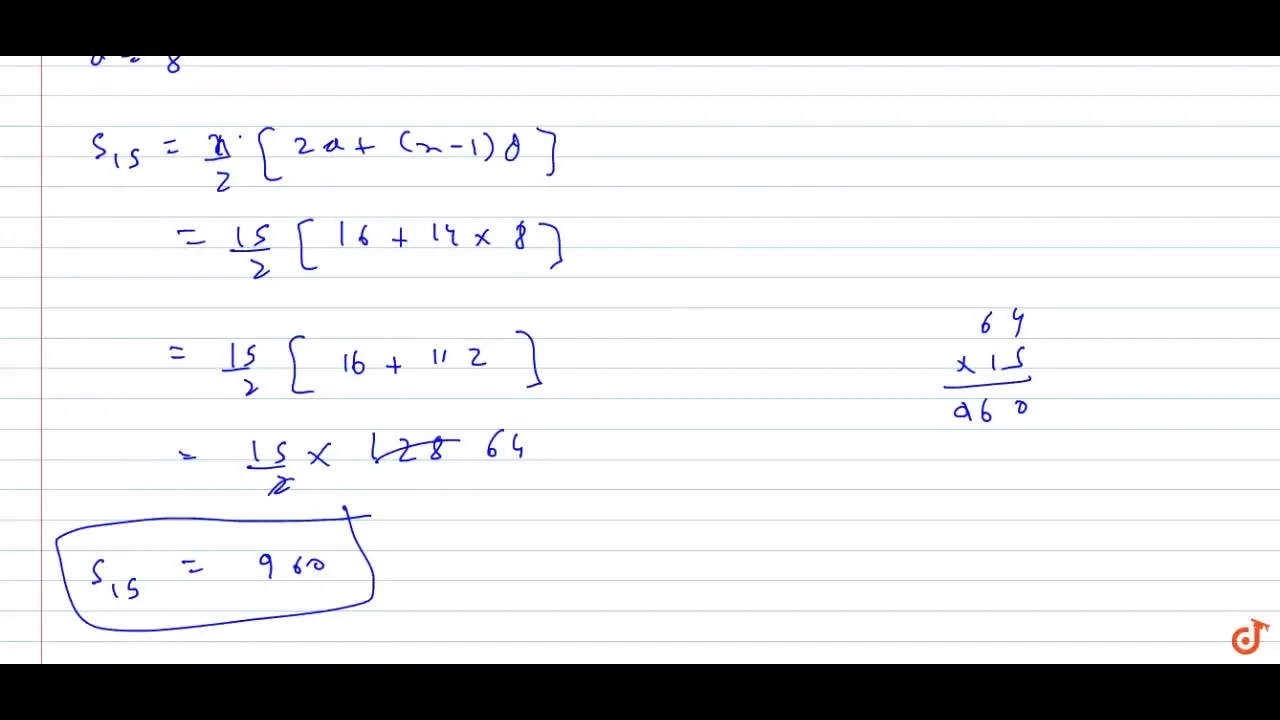 = 8
S₁₅ = n/2 [ 2a + (n-1) d ]
= 15/2 [ 16 + 14 x 8 ]
= 15/2 [ 16 + 112 ]
= 15/2 x 128 64
S₁₅ = 960
64
x 15
960